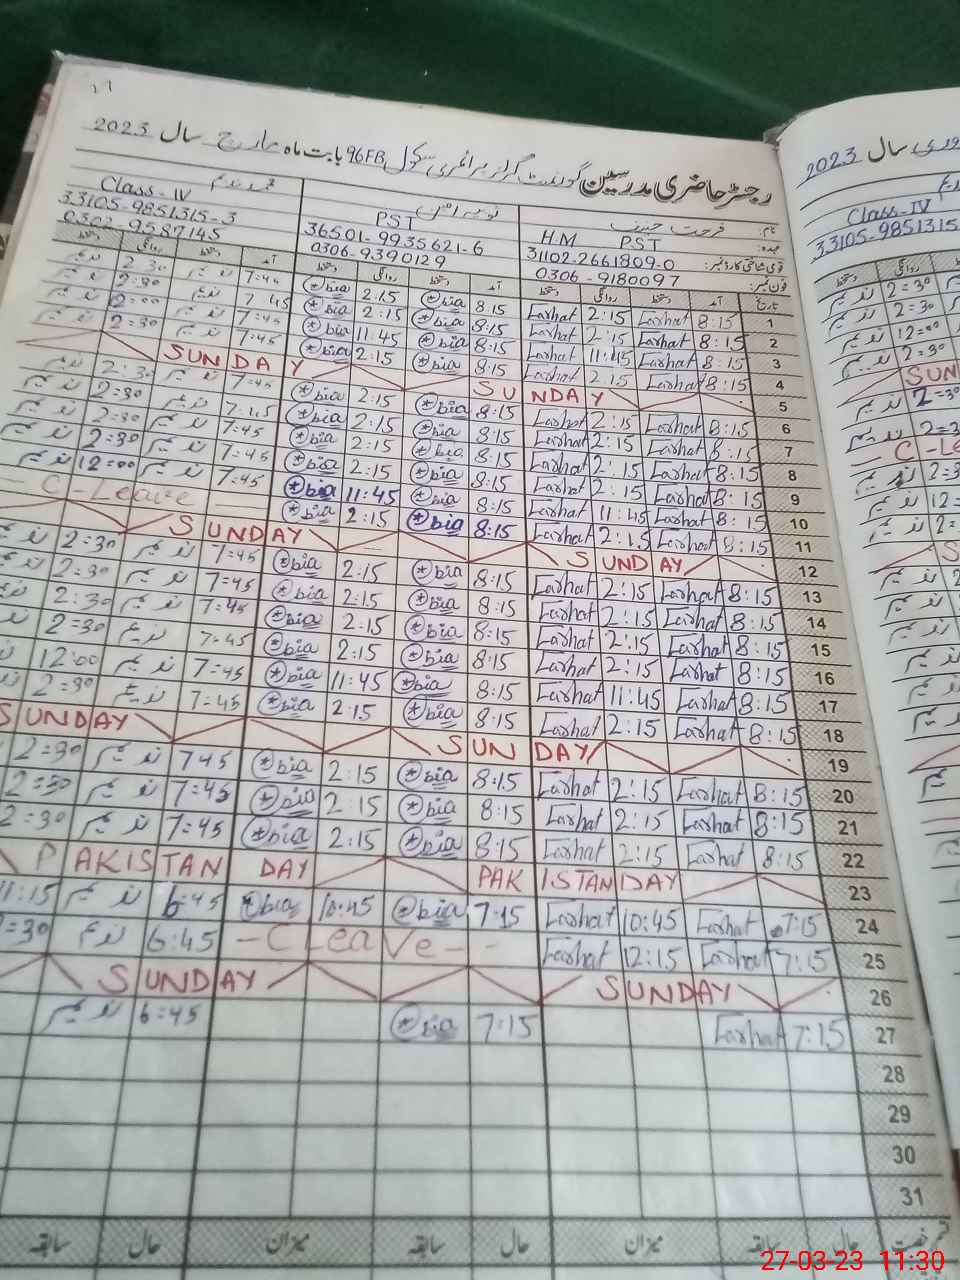 رجسٹر حاضری مدرسین گورنمنٹ گرلز پرائمری سکول 96FB بابت ماہ مارچ سال 2023
نام: فرحت حنیف
عہدہ: H.M PST PST Class-IV
قومی شناختی کارڈ نمبر: 31102-2661809-0 36501-9935621-6 33105-9851315-3
فون نمبر: 0306-9180097 0306-9390129 0302-9587145
تاریخ آمد دستخط روانگی دستخط آمد دستخط روانگی دستخط آمد دستخط روانگی دستخط
1 8:15 Farhat 2:15 Farhat 8:15 bia 2:15 bia 7=45 ندیم 2=30 ندیم
2 8:15 Farhat 2:15 Farhat 8:15 bia 2:15 bia 7=45 ندیم 2=30 ندیم
3 8:15 Farhat 11:45 Farhat 8:15 bia 11:45 bia 7=45 ندیم
4 8:15 Farhat 2:15 Farhat 8:15 bia 2:15 bia 7=45 ندیم 2=30 ندیم
5 SUNDAY SUNDAY
6 8:15 Farhat 2:15 Farhat 8:15 bia 2:15 bia 7=45 ندیم 2:30 ندیم
7 8:15 Farhat 2:15 Farhat 8:15 bia 2:15 bia 7:45 ندیم 2=30 ندیم
8 8:15 Farhat 2:15 Farhat 8:15 bia 2:15 bia 7=45 ندیم 2=30 ندیم
9 8:15 Farhat 2:15 Farhat 8:15 bia 2:15 bia 7=45 ندیم 2=30 ندیم
10 8:15 Farhat 11:45 Farhat 8:15 bia 11:45 bia 7=45 ندیم 12=00 ندیم
11 8:15 Farhat 2:15 Farhat 8:15 bia 2:15 bia C-Leave
12 SUNDAY SUNDAY
13 8:15 Farhat 2:15 Farhat 8:15 bia 2:15 bia 7=45 ندیم 2=30
14 8:15 Farhat 2:15 Farhat 8:15 bia 2:15 bia 7=45 ندیم 2=30
15 8:15 Farhat 2:15 Farhat 8:15 bia 2:15 bia 7=45 ندیم 2:30
16 8:15 Farhat 2:15 Farhat 8:15 bia 2:15 bia 7=45 ندیم 2=30
17 8:15 Farhat 11:45 Farhat 8:15 bia 11:45 bia 7=45 ندیم 12:00
18 8:15 Farhat 2:15 Farhat 8:15 bia 2:15 bia 7=45 ندیم 2=30
19 SUNDAY SUNDAY
20 8:15 Farhat 2:15 Farhat 8:15 bia 2:15 bia 7:45 ندیم 2=30
21 8:15 Farhat 2:15 Farhat 8:15 bia 2:15 bia 7=45 ندیم 2=30
22 8:15 Farhat 2:15 Farhat 8:15 bia 2:15 bia 7=45 ندیم 2=30
23 PAKISTAN DAY PAKISTAN DAY
24 7:15 Farhat 10:45 Farhat 7:15 bia 10:45 bia 6=45 ندیم 11:15
25 7:15 Farhat 12:15 Farhat - C Leave - 6:45 ندیم
26 SUNDAY SUNDAY
27 7:15 Farhat 7:15 bia 6=45 ندیم
28
29
30
31
قسم رخصت حال سابقہ میزان حال سابقہ میزان حال سابقہ
سال 2023
Class-IV
33105-9851315
27-03-23 11:30